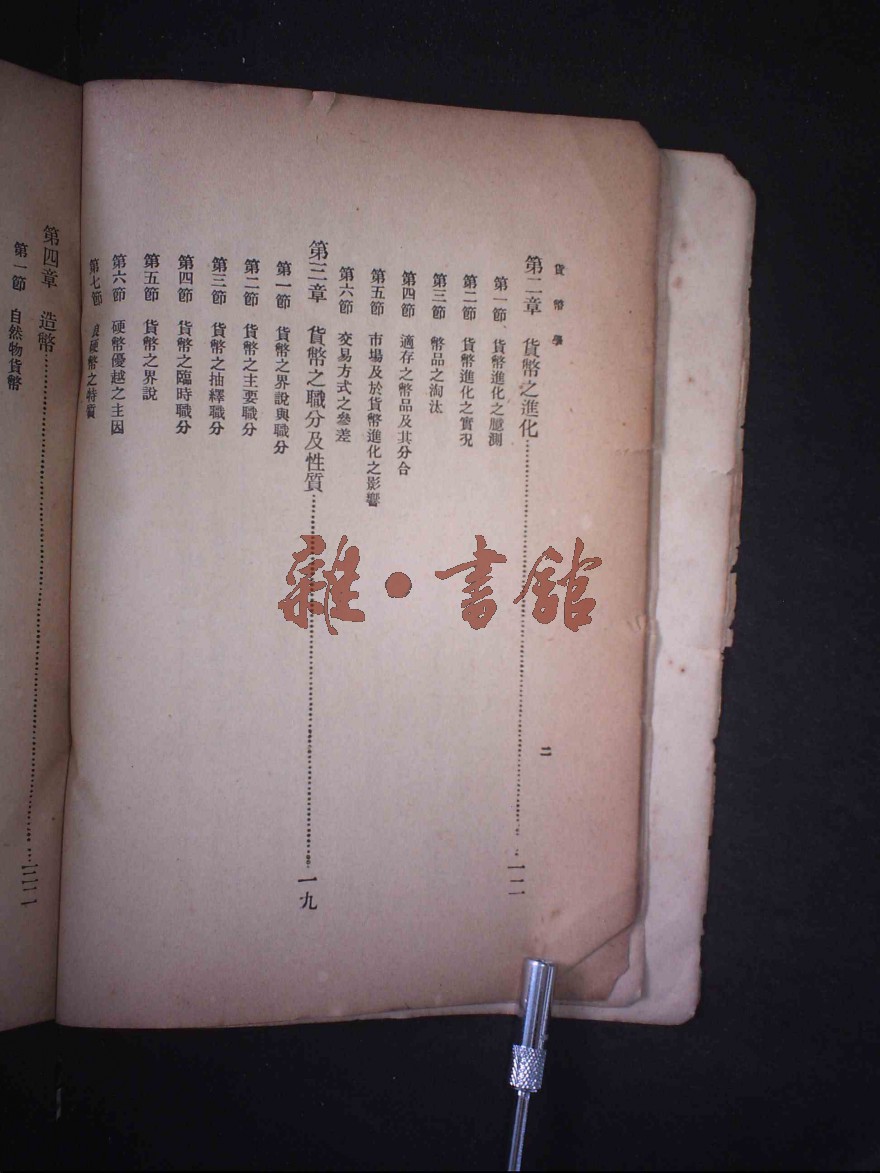 貨幣學
二
第二章 貨幣之進化……一二
第一節 貨幣進化之臆測
第二節 貨幣進化之實况
第三節 幣品之淘汰
第四節 適存之幣品及其分合
第五節 市場及於貨幣進化之影響
第六節 交易方式之參差
第三章 貨幣之職分及性質……一九
第一節 貨幣之界說與職分
第二節 貨幣之主要職分
第三節 貨幣之抽繹職分
第四節 貨幣之臨時職分
第五節 貨幣之界說
第六節 硬幣優越之主因
第七節 良硬幣之特質
第四章 造幣……
第一節 自然物貨幣
雜·書館